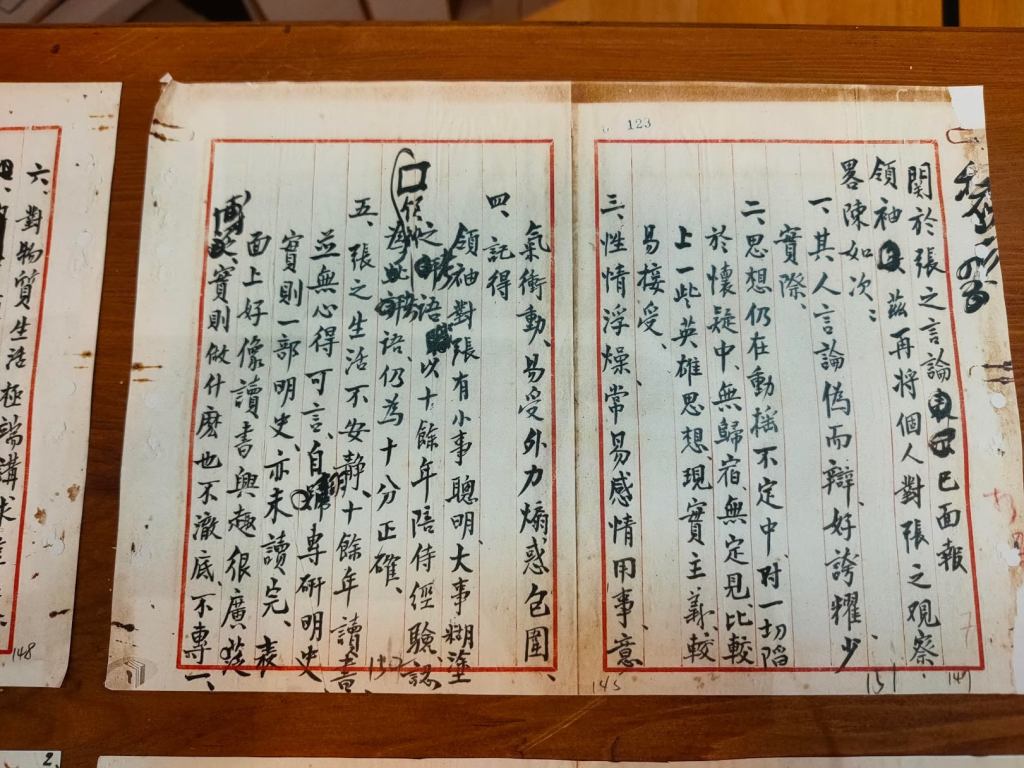 123
關於張之言論已面報
領袖茲再將個人對張之观察
畧陳如次：
一、其人言論偽而辯、好誇耀、少
實際、
二、思想仍在動搖不定中、对一切陷
於懷疑中、無歸宿、無定見、比較
上一些英雄思想、現實主義、較
易接受、
三、性情浮燥、常易感情用事、意
149
151
145
氣衝動、易受外力煽惑包圍、
四、記得
領袖對張有小事聰明、大事糊塗
之評語、以十餘年陪侍經驗、認
為此評語、仍為十分正確、
五、張之生活不安靜、十餘年讀書、
並無心得可言、自專研明史、
實則一部明史、亦未讀完、表
面上好像讀書興趣很廣、
博實則做什麼也不澈底、不專一、
152
六、對物質生活極端講求
148
2.